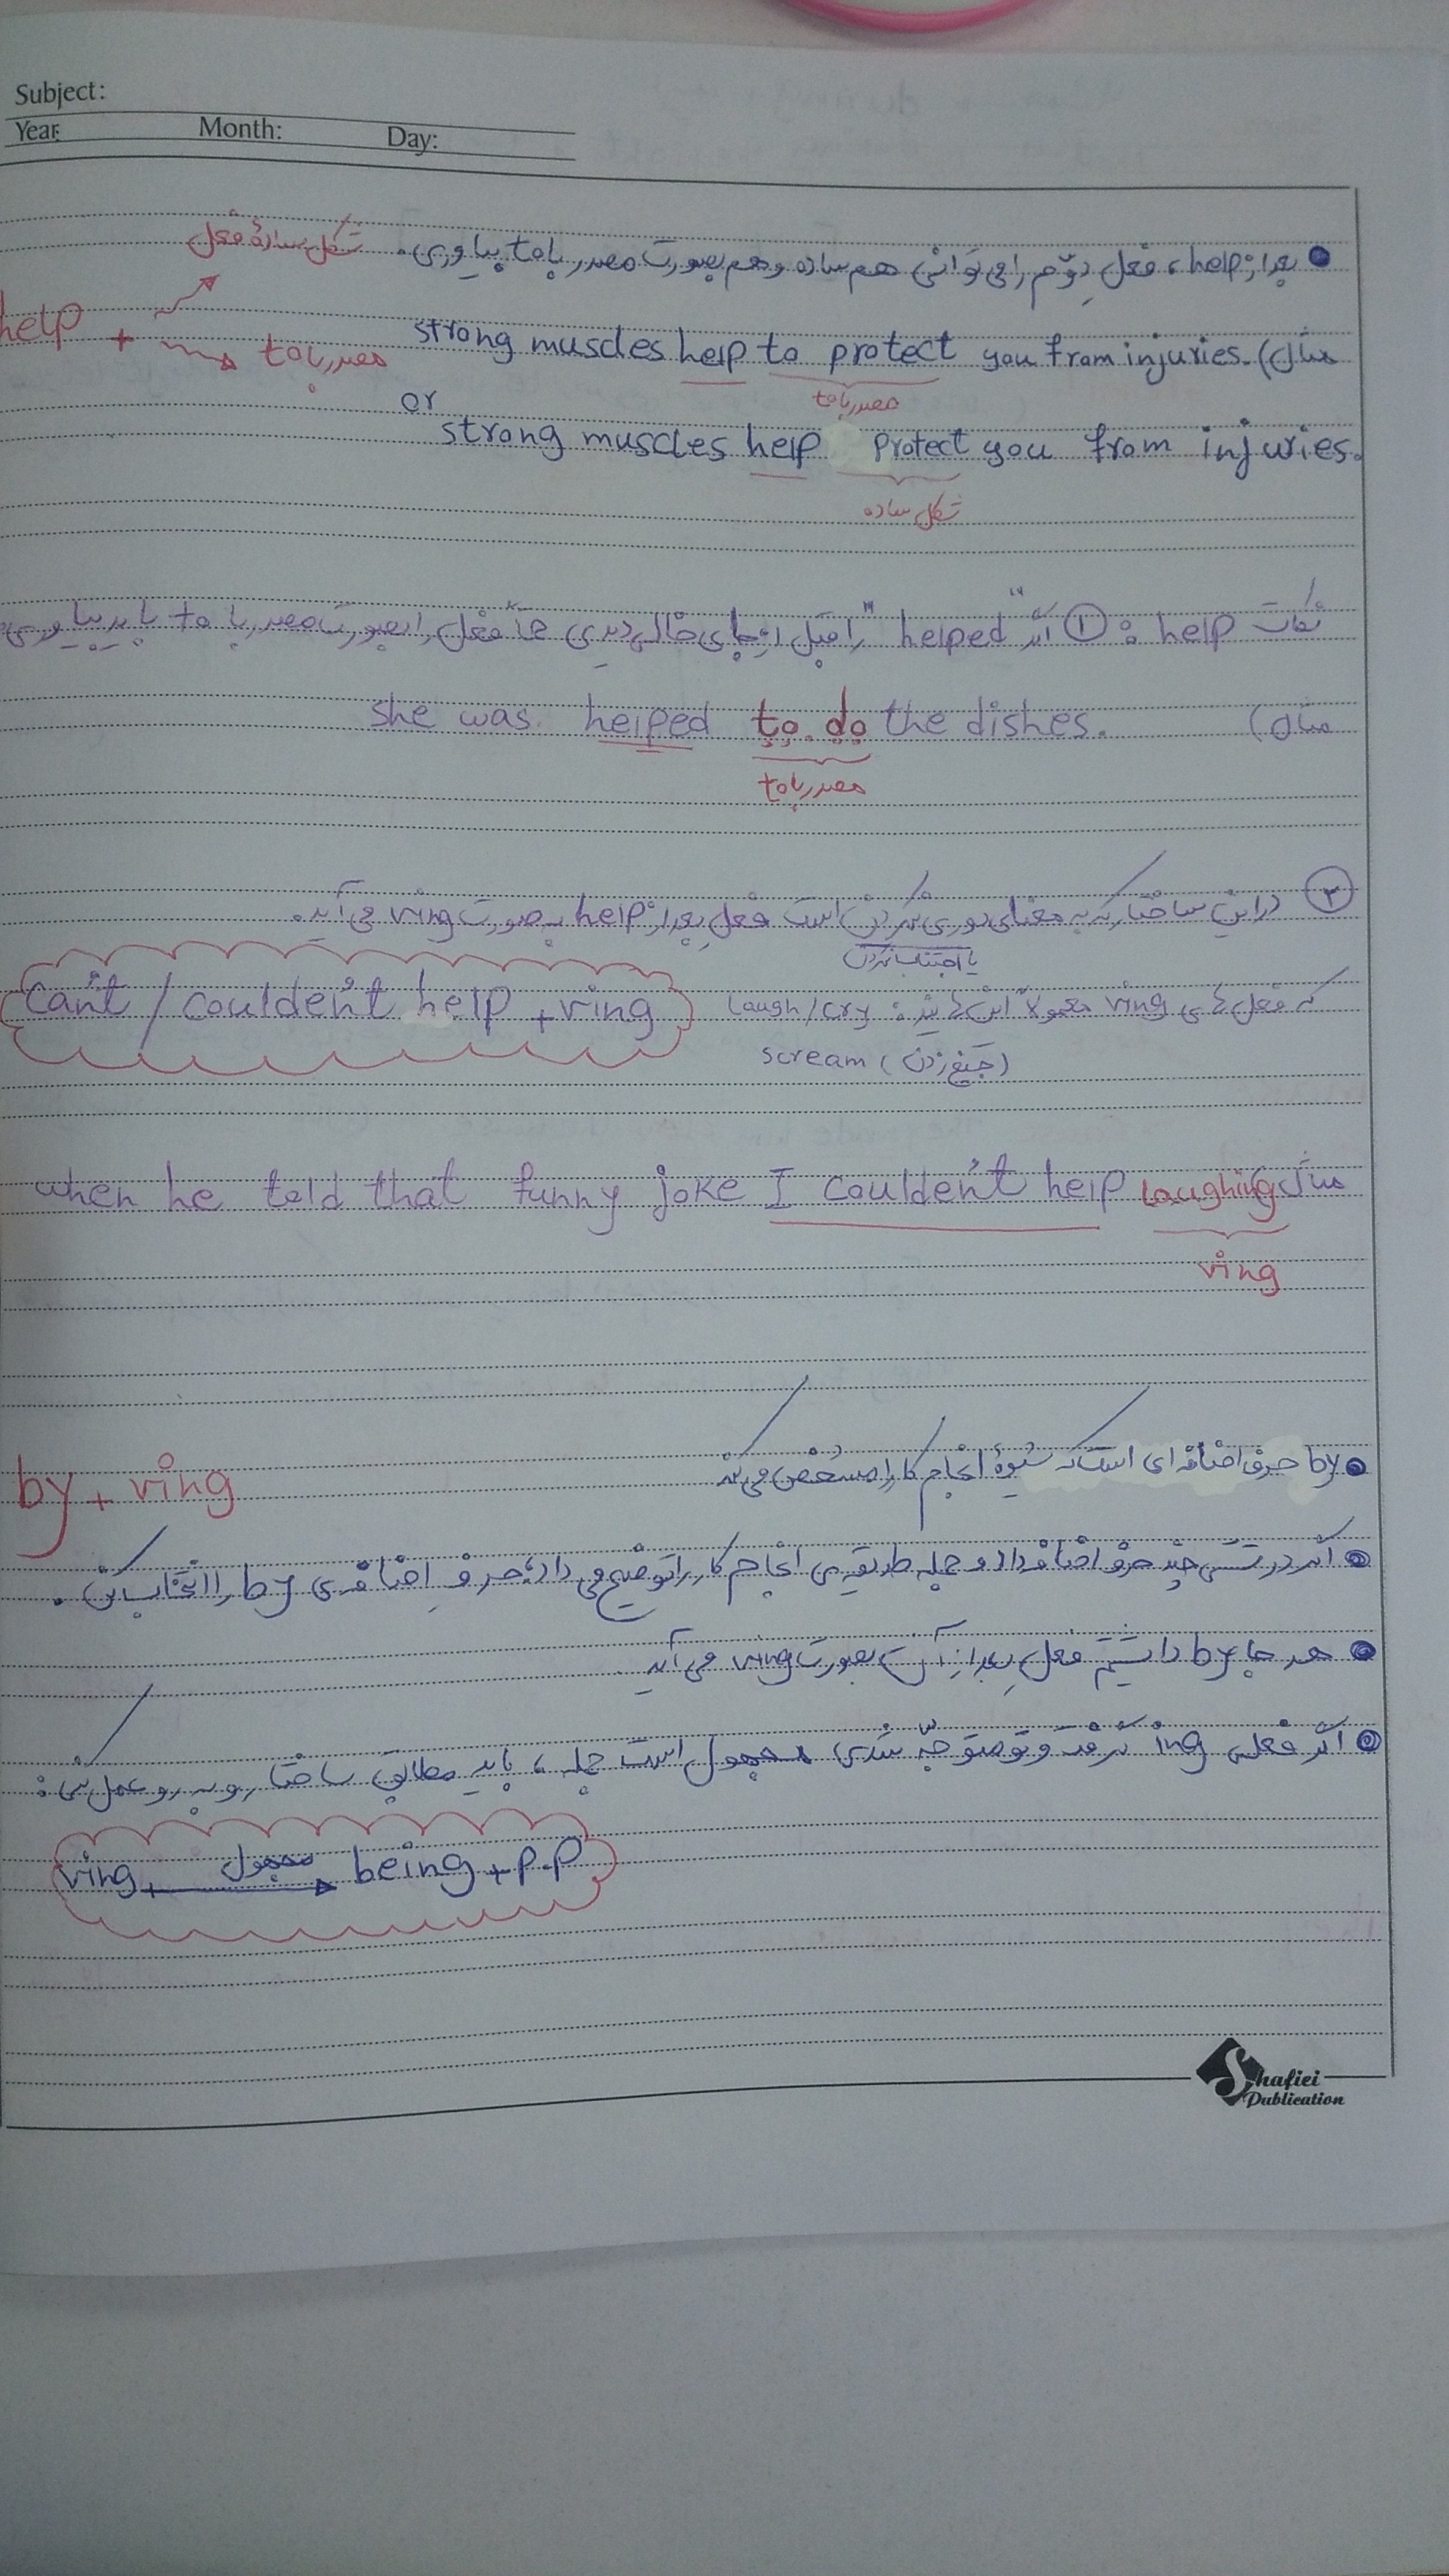 Subject:
Year: Month: Day:
• بعد از help، فعلِ دوّم را می‌توانی هم ساده و هم بصورت مصدر با to بیاوری.
شکل ساده‌ٔ فعل
help +
مصدر با to
مثال) strong muscles help to protect you from injuries.
مصدر با to
or
strong muscles help protect you from injuries.
شکل ساده
نکات help : ① اگر "helped" را قبل از جای خالی دیدی حتماً فعل را بصورت مصدر با to باید بیاوری
مثال) she was helped to do the dishes.
مصدر با to
② در این ساختار که به معنای دوری نکردن است فعلِ بعد از help به صورت ving می‌آید.
یا اجتناب نکردن
can't / coulden't help + ving
که فعل‌های ving معمولاً این‌هایند : laugh / cry
scream (جیغ زدن)
مثال when he told that funny joke I coulden't help laughing
ving
• by حرف اضافه‌ای است که شیوهٔ انجام کار را مشخص می‌کند
by + ving
• اگر در تستی چند حرف اضافه داد و جمله طریقه‌ی انجام کار را توضیح می داد؛ حرفِ اضافه‌ی by را انتخاب کن.
• هر جا by داشتیم فعلِ بعد از آن بصورت ving می‌آید
• اگر فعلی ing گرفت و تو متوجّه شدی مجهول است جمله، باید مطابق ساختار رو به رو عمل کنی:
ving مجهول being + p.p
Shafiei
Publication